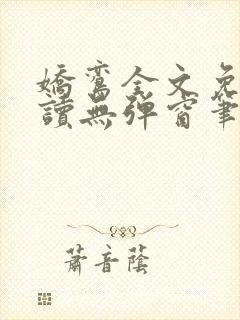 嬌鸞全文免
讀無彈窗筆
蕭音蔭